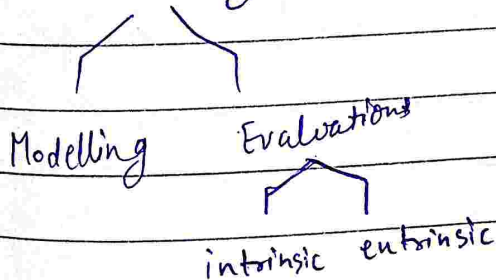 Modelling Evaluations
intrinsic entrinsic